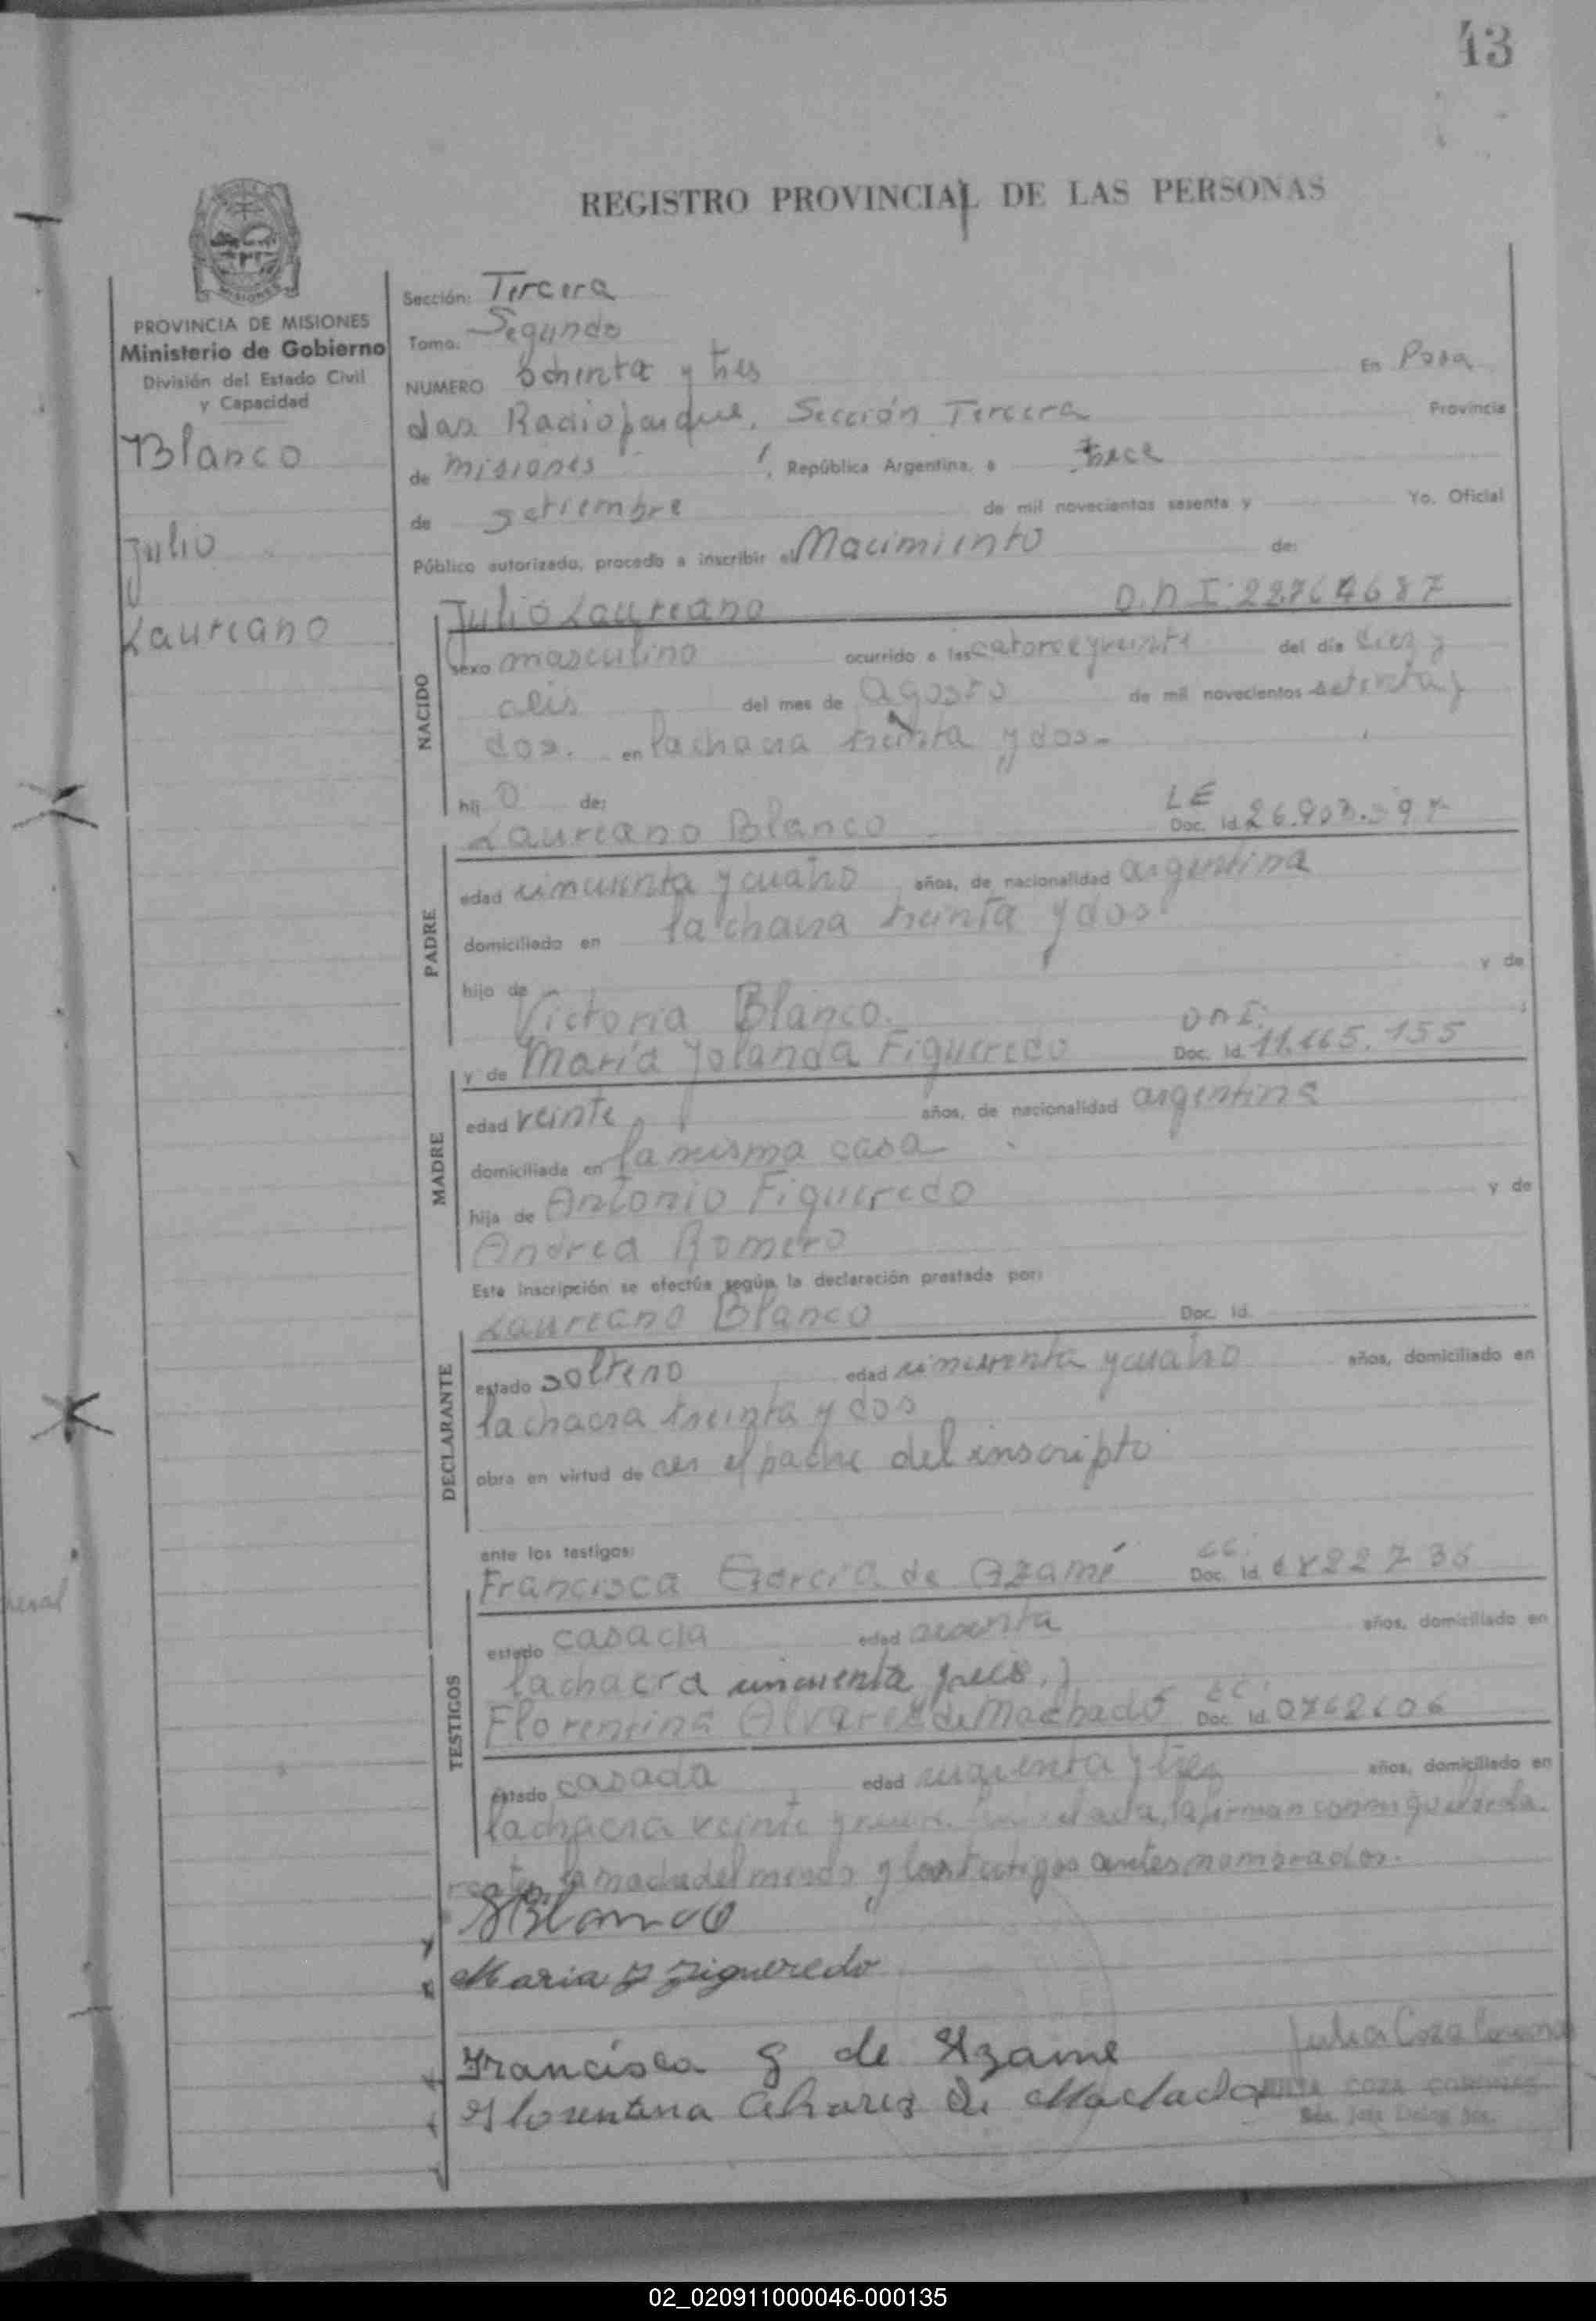 43
REGISTRO PROVINCIAL DE LAS PERSONAS
MISIONES
PROVINCIA DE MISIONES
Ministerio de Gobierno
División del Estado Civil
y Capacidad
Blanco
Julio
Laureano
Sección: Tercera
Tomo: Segundo
NUMERO Ochenta y tres En Posa
das Radioparque, Sección Tercera Provincia
de Misiones, República Argentina, a trece
de setiembre de mil novecientos sesenta y Yo. Oficial
Público autorizado, procedo a inscribir el Nacimiento de:
Julio Laureano D.N.I. 22.764687
NACIDO
sexo masculino ocurrido a las catorce y veinte del día diez y
seis del mes de agosto de mil novecientos setenta y
dos. en la chacra treinta y dos.-
hij o de:
Laureano Blanco LE Doc. Id.
PADRE
edad cincuenta y cuatro años, de nacionalidad argentina
domiciliado en la chacra treinta y dos
hijo de y de
Victoria Blanco.
y de María Yolanda Figueredo DNI. Doc. Id. 11.165.155
MADRE
edad veinte años, de nacionalidad argentina
domiciliada en la misma casa
hija de Antonio Figueredo y de
Andrea Romero
Esta inscripción se efectúa según la declaración prestada por:
Laureano Blanco Doc. Id.
DECLARANTE
estado soltero edad cincuenta y cuatro años, domiciliado en
la chacra treinta y dos
obra en virtud de ser el padre del inscripto
ante los testigos:
Francisca Garcia de Azamé Doc. Id.
TESTIGOS
estado casada edad años, domiciliado en
la chacra cincuenta y seis.
Florentina Alvarez de Machado Doc. Id. 0762606
estado casada edad cincuenta y tres años, domiciliado en
la chacra veinte y acta, la firman conmigo el decla
rante, la madre del menor y los testigos antes nombrados.
Blanco
Maria Y Figueredo
Francisca G de Azame
Florentina Alvarez de Machado
Julia Coza Coronas
JULIA COZA CORONAS
02_020911000046-000135